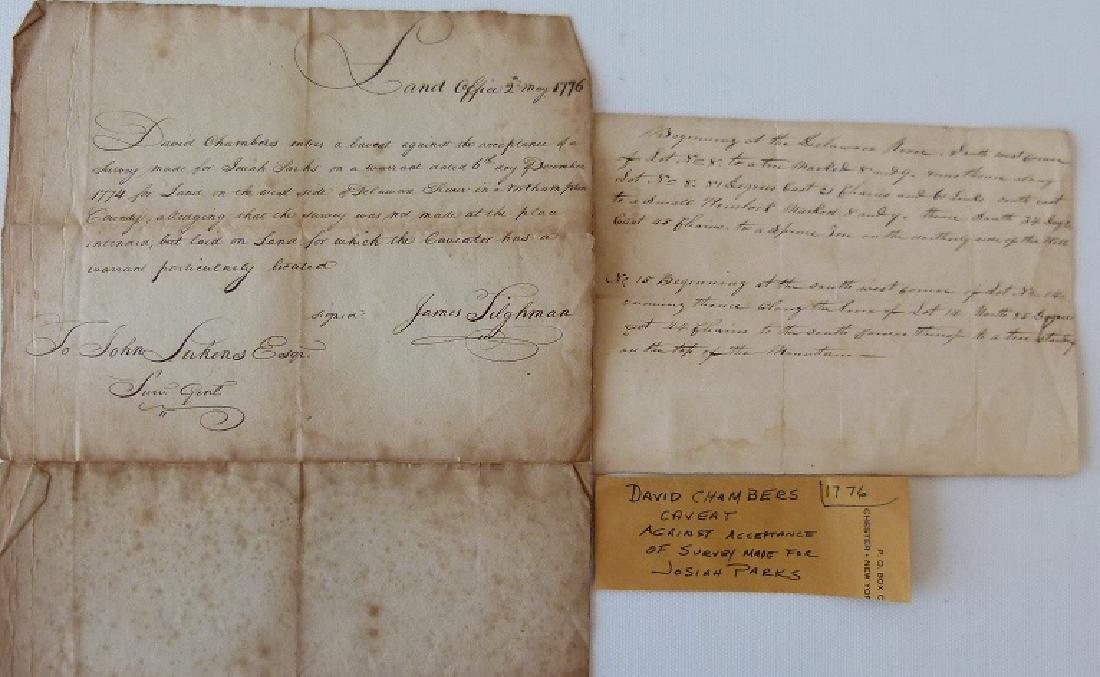 Land Office 2d May 1776
David Chambers enters a Caveat against the acceptance of a
Survey made for Josiah Parks on a warrant dated 6th day of December
1774 for Land on the west side of Delaware River in Northampton
County, alledging that the Survey was not made at the place
intended, but laid on Land for which the Caveator has a
warrant particularly located
signed James Tilghman
To John Lukens Esqr.
Surv. Genl.
Beginning at the Delaware River South west corner
of Lot No 8. to a tree Marked & and running thence along
Lot No 8: Degrees East 21 Chains and 60 Links South east
to a Small Hemlock Marked thence South 34 Degs
East 45 Chains to a Spruce tree on the northerly side of the
No 15 Beginning at the south west corner of Lot No 14
running thence along the line of Lot 14 North 85 Degrees
24 Chains to the south to a tree standing
on the top of the Mountain
DAVID CHAMBERS
1776
CAVEAT
AGAINST ACCEPTANCE
OF SURVEY MADE FOR
JOSIAH PARKS
P.O. BOX C
CHESTER • NEW YOR